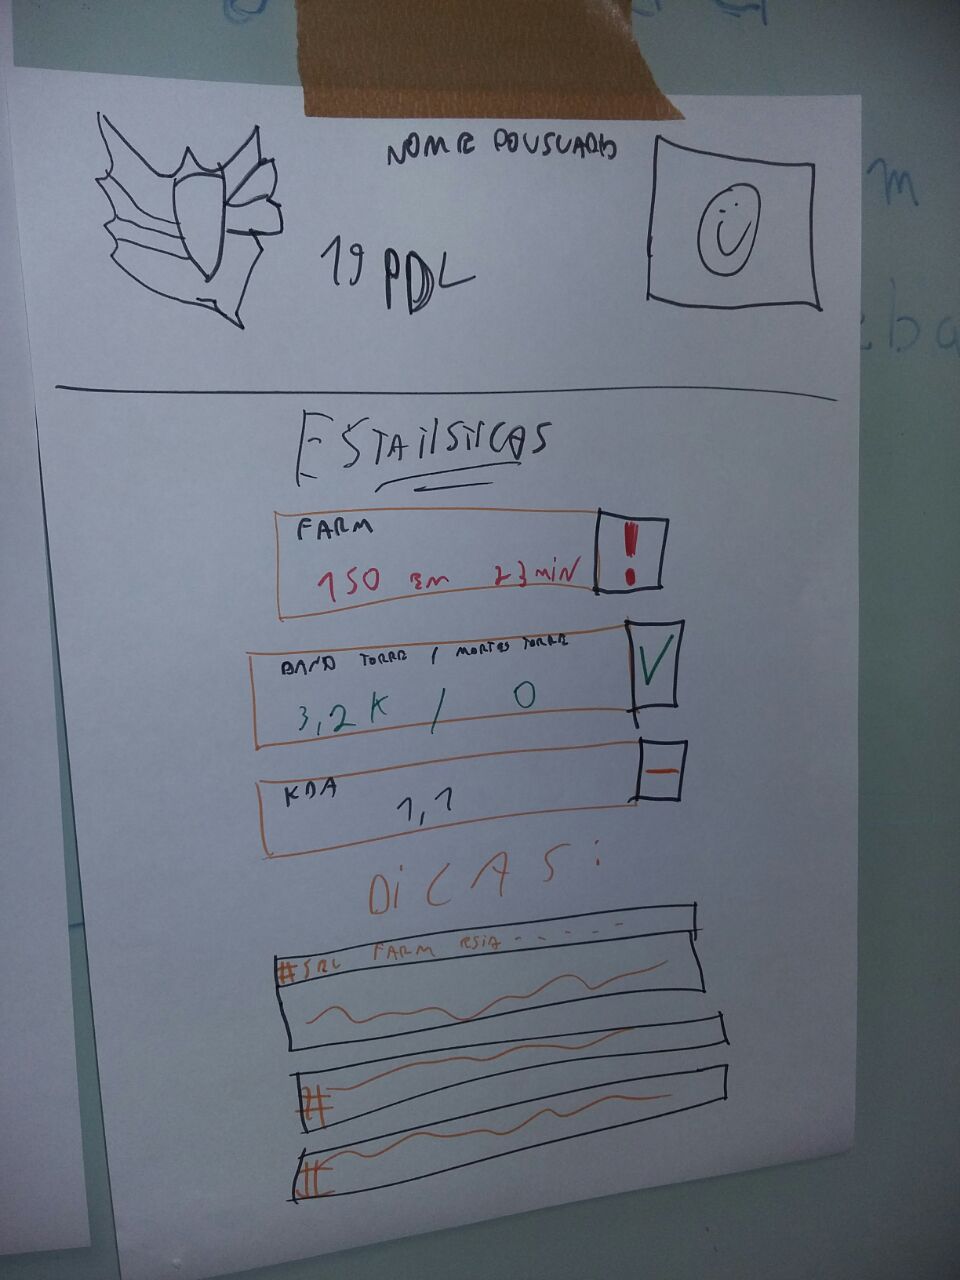 NOME DO USUARIO
19 PDL
ESTATISTICAS
FARM
150 EM 23 MIN
!
DANO TORRE / MORTES TORRE
3,2K / 0
KDA
1,1
DiCAS:
#SEU FARM ESTA - - - - -
#
#
m
eba